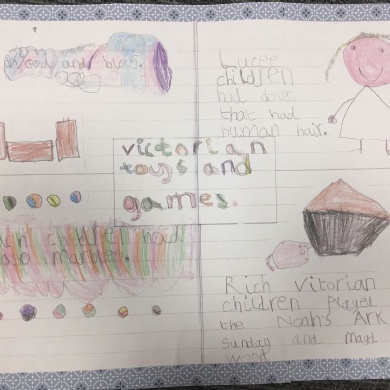 Wood and
victorian
toys and
games.
children had
marbles.
Lucee
children
that had
human hair.
Rich vitorian
children Played
the Noahs Ark
Sunday and
wood